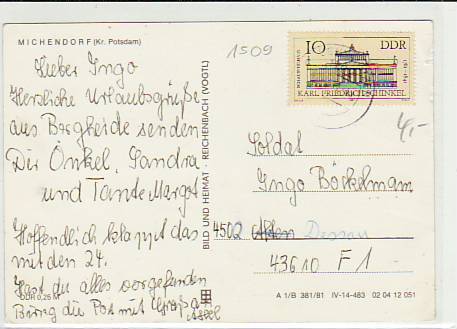 MICHENDORF (Kr. Potsdam)
1509
10 DDR
SCHAUSPIELHAUS
KARL FRIEDRICH SCHINKEL
Lieber Ingo
Herzliche Urlaubsgrüße
aus Bergheide senden
Dir Onkel, Sandra
und Tante Margot
Hoffentlich klappt das
mit den 24.
Hast du alles vorgefunden
Bring die Post mit Gruß
DDR 0,25 M
BILD UND HEIMAT · REICHENBACH (VOGTL)
4,-
Soldat
Ingo Böckelmann
4502 Dessau
43610 F1
A 1/B 381/81 IV-14-483 02 04 12 051